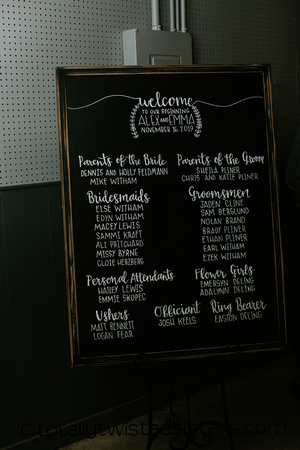 welcome
TO OUR BEGINNING
ALEX AND EMMA
NOVEMBER 16, 2019
Parents of the Bride
DENNIS AND HOLLY FELDMANN
MIKE WITHAM
Parents of the Groom
SHEILA PLINER
CHRIS AND KATIE PLINER
Bridesmaids
ELSE WITHAM
EDYN WITHAM
MACEY LEWIS
SAMMI KRAFT
ALI PRITCHARD
MISSY BYRNE
CLOIE HERZBERG
Groomsmen
JADEN CLINE
SAM BERGLUND
NOLAN BRAND
BRADY PLINER
ETHAN PLINER
EARL WITHAM
EZEK WITHAM
Personal Attendants
HAILEY LEWIS
EMMIE SKOPEC
Flower Girls
EMERSYN DELING
ADALYNN DELING
Ushers
MATT BENNETT
LOGAN FEAR
Officiant
JOSH KEELS
Ring Bearer
EASTON DELING
©totallytwistedsisters.com